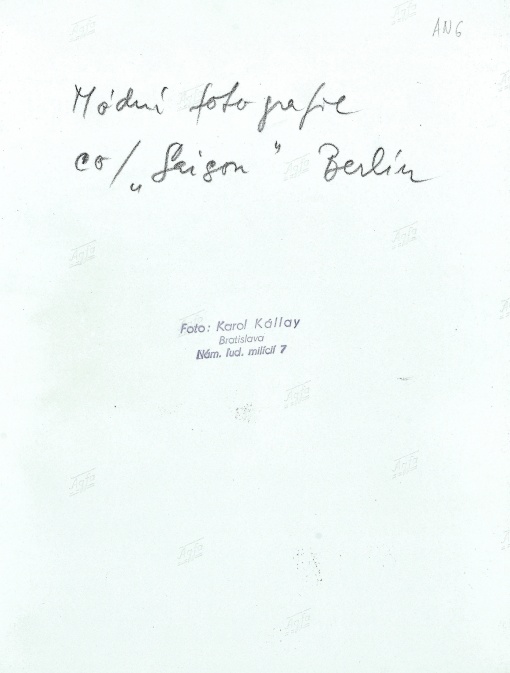 AN6
Módní fotografie
co/„Saison" Berlín
Foto: Karol Kállay
Bratislava
Nám. ľud. milícií 7
Agfa